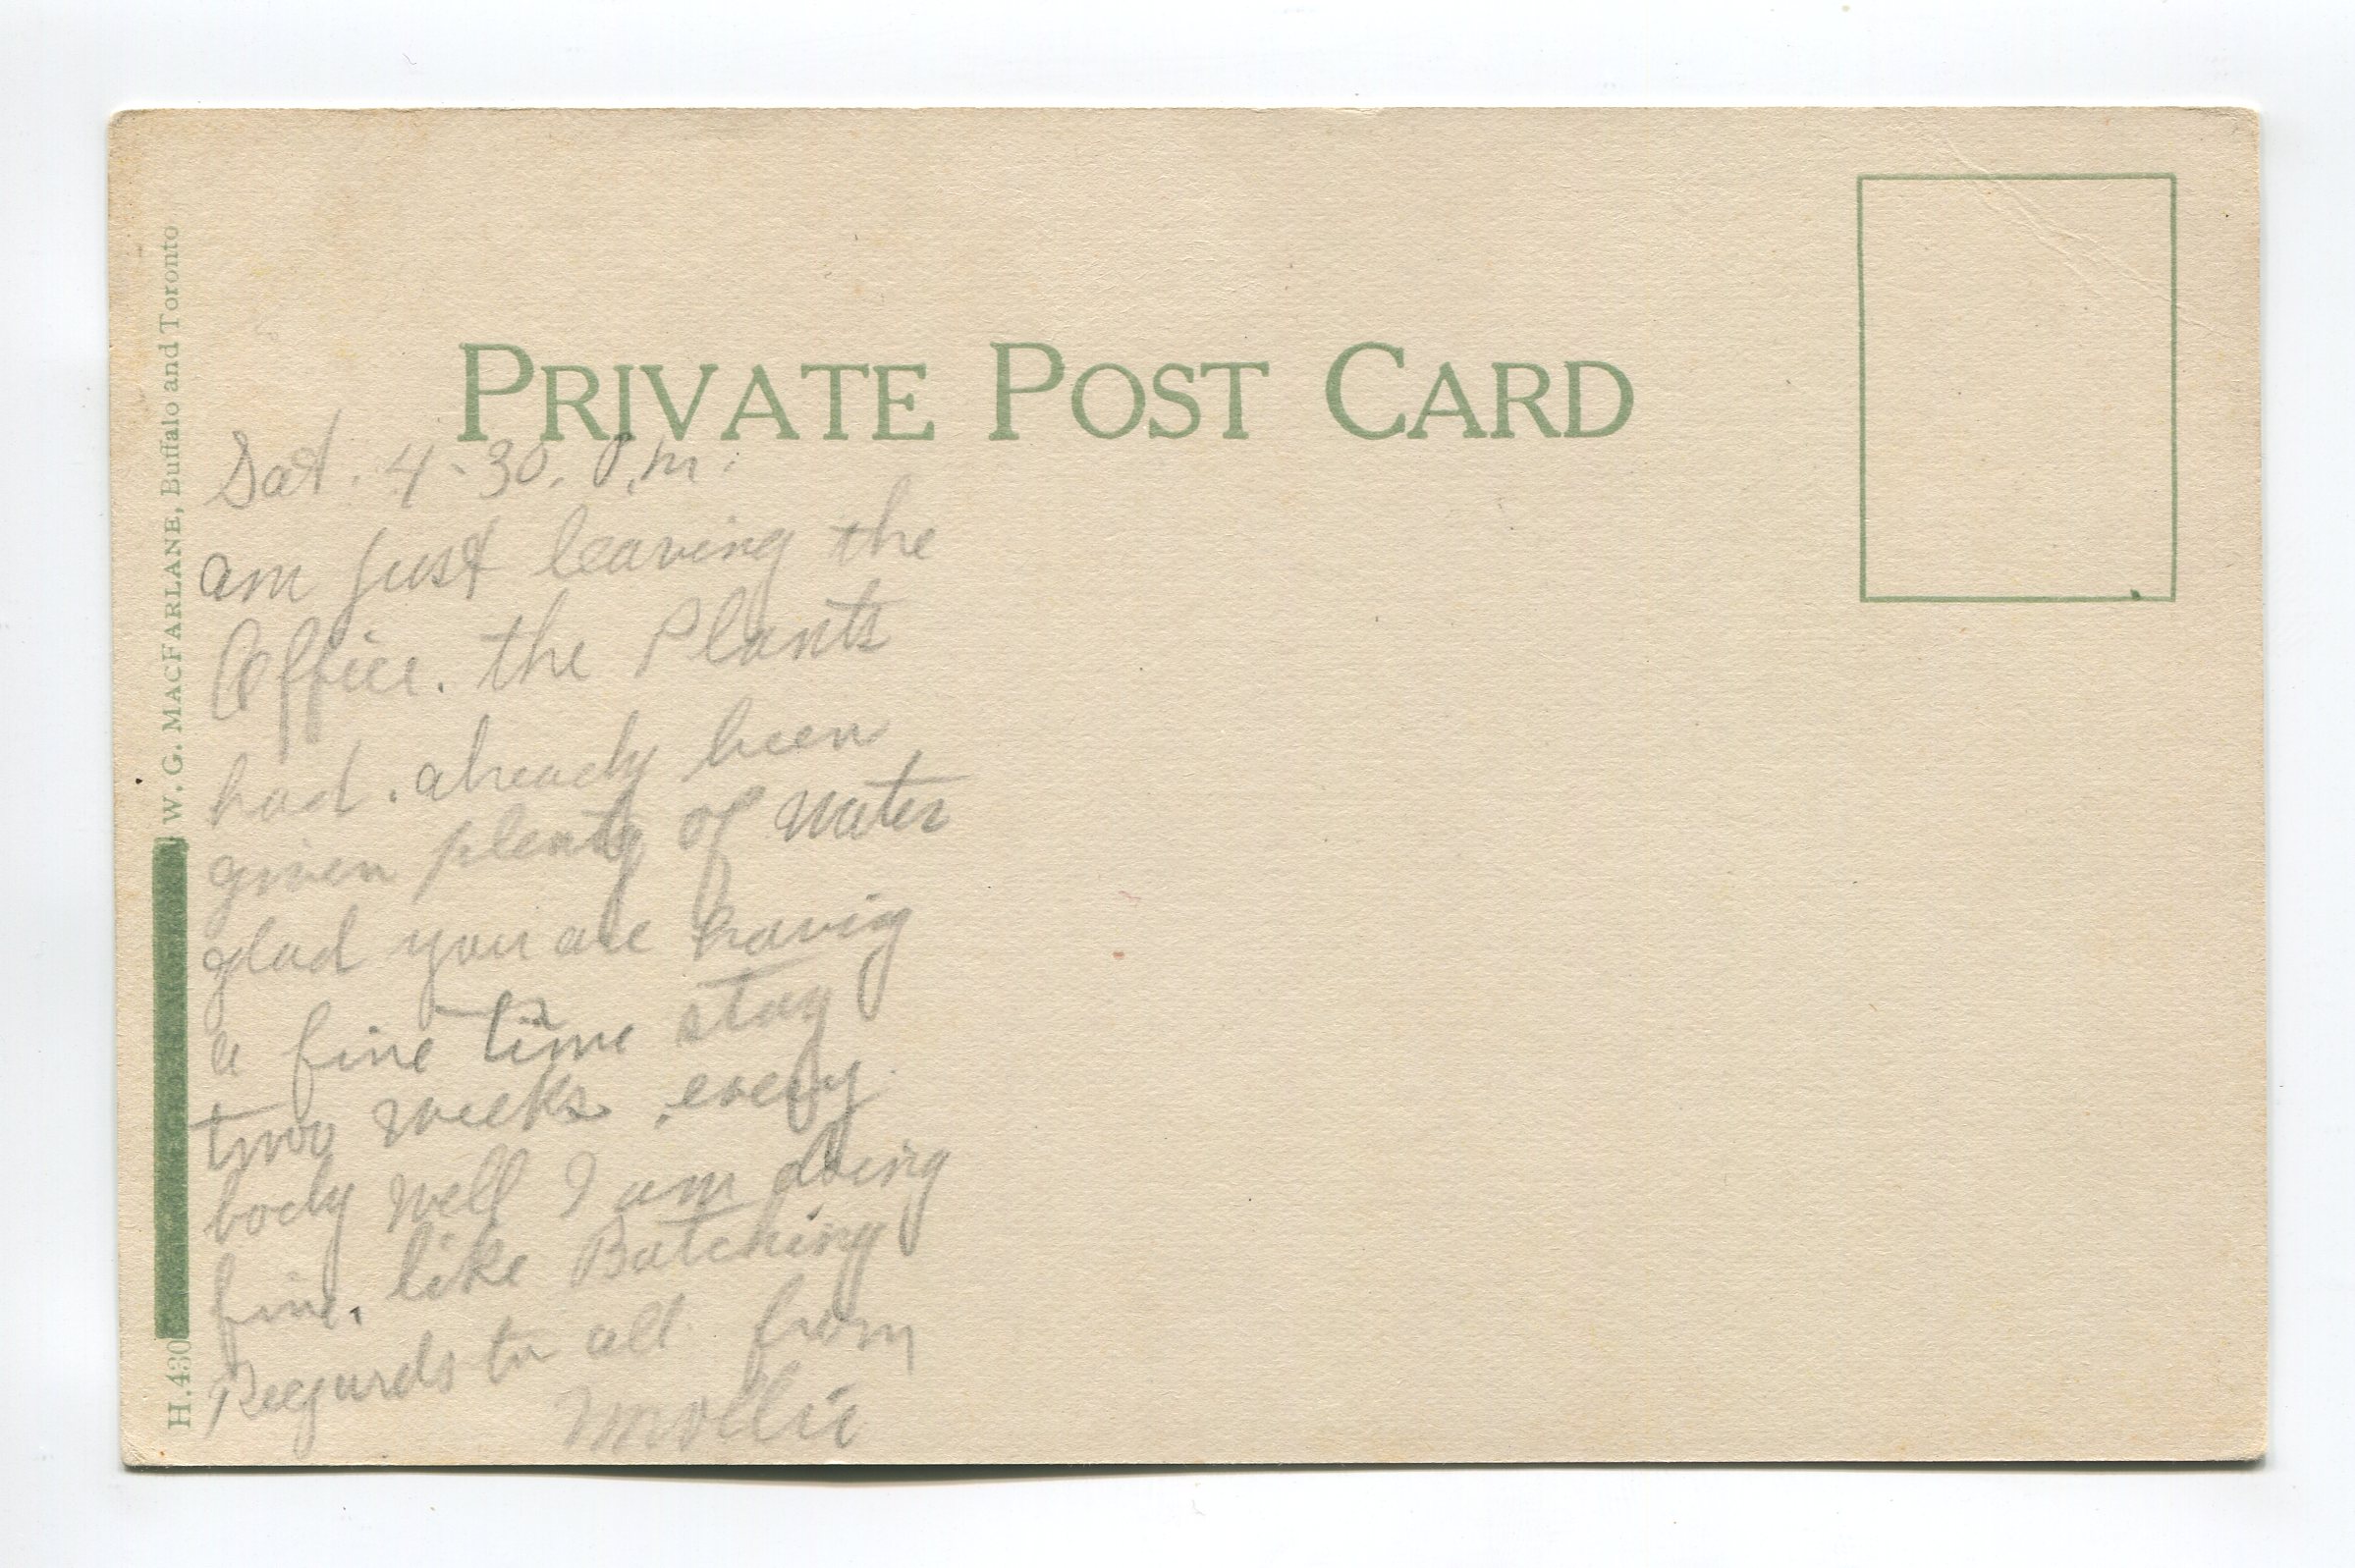 PRIVATE POST CARD
W. G. MACFARLANE, Buffalo and Toronto
H.430
Sat. 4-30. P.m.
am just leaving the
Office. the Plants
had. already been
given plenty of water
glad you are having
a fine time stay
two weeks. every
body well I am doing
fine. like Batching
Regards to all from
Mollie